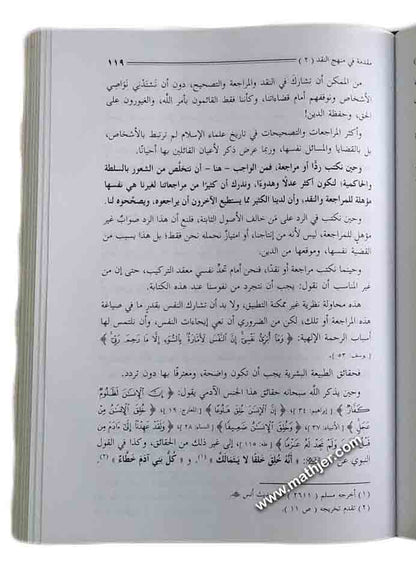 مقدمة في منهج النقد ( ٢ ) ١١٩
من الممكن أن نشارك في النقد والمراجعة والتصحيح، دون أن تستبد بنواصي
الأشخاص ونوقفهم أمام قضاءاتنا، وكأننا فقط القائمون بأمر الله، والغيورون على
الحق، وحفظة الدين!
وأكثر المراجعات والتصحيحات في تاريخ علماء الإسلام لم ترتبط بالأشخاص،
بل بالقضايا والمسائل نفسها، وربما عرض ذكر لأعيان القائلين بها أحيانًا.
وحين نكتب ردًّا أو مراجعة، فمن الواجب - هنا - أن نتخلَّص من الشعور بالسلطة
والحاكمية؛ لنكون أكثر عدلًا وهدوءًا، وندرك أن كثيرًا من مراجعاتنا لغيرنا هي نفسها
مؤهلة للمراجعة والنقد، وأن لدينا الكثير مما يستطيع الآخرون أن يراجعوه، ويصححوه لنا.
وحين نكتب في الرد على مَن خالف الأصول الثابتة، فلنعِ أن هذا الرد صوابٌ غير
مؤهل للمراجعة، ليس لأنه من إنتاجنا، أو امتيازٌ نحمله نحن فقط؛ بل هذا بسبب من
القضية نفسها، وموقعها من الدين.
وحينما نكتب مراجعة أو نقدًا، فنحن أمام تحدٍّ نفسي معقد التركيب، حتى إن من
غير المناسب أن نقول: يجب أن نتجرد من نفوسنا عند هذه الكتابة.
هذه محاولة نظرية غير ممكنة التطبيق، ولا بد أن تشارك النفس بقدرٍ ما في صياغة
هذه المراجعة أو تلك؛ لكن من الضروري أن نعي إيحاءات النفس، وأن نلتمس لها
أسباب الرحمة الإلهية: ﴿ وَمَا أُبَرِّئُ نَفْسِي إِنَّ النَّفْسَ لَأَمَّارَةٌ بِالسُّوءِ إِلَّا مَا رَحِمَ رَبِّي ﴾
[ يوسف: ٥٣ ].
فحقائق الطبيعة البشرية يجب أن تكون واضحة، ومعترفًا بها دون تردد.
وحين يذكر الله سبحانه حقائق هذا الجنس الآدمي يقول: ﴿ إِنَّ الْإِنْسَانَ لَظَلُومٌ
كَفَّارٌ ﴾ [ إبراهيم: ٣٤ ]، ﴿ إِنَّ الْإِنْسَانَ خُلِقَ هَلُوعًا ﴾ [ المعارج: ١٩ ]، ﴿ خُلِقَ الْإِنْسَانُ مِنْ
عَجَلٍ ﴾ [ الأنبياء: ٣٧ ]، ﴿ وَخُلِقَ الْإِنْسَانُ ضَعِيفًا ﴾ [ النساء: ٢٨ ]، ﴿ وَلَقَدْ عَهِدْنَا إِلَى آدَمَ مِنْ
قَبْلُ فَنَسِيَ وَلَمْ نَجِدْ لَهُ عَزْمًا ﴾ [ طه: ١١٥ ]، إلى غير ذلك من الحقائق، وكذا في القول
النبوي عن ﷺ: « أَنَّهُ خُلِقَ خَلْقًا لَا يَتَمَالَكُ »(١)، و « كُلُّ بَنِي آدَمَ خَطَّاءٌ »(٢).
(١) أخرجه مسلم ( ٢٦١١ ) أنس
(٢) تقدم تخريجه ( ص ١١ ).
www.mathjer.com